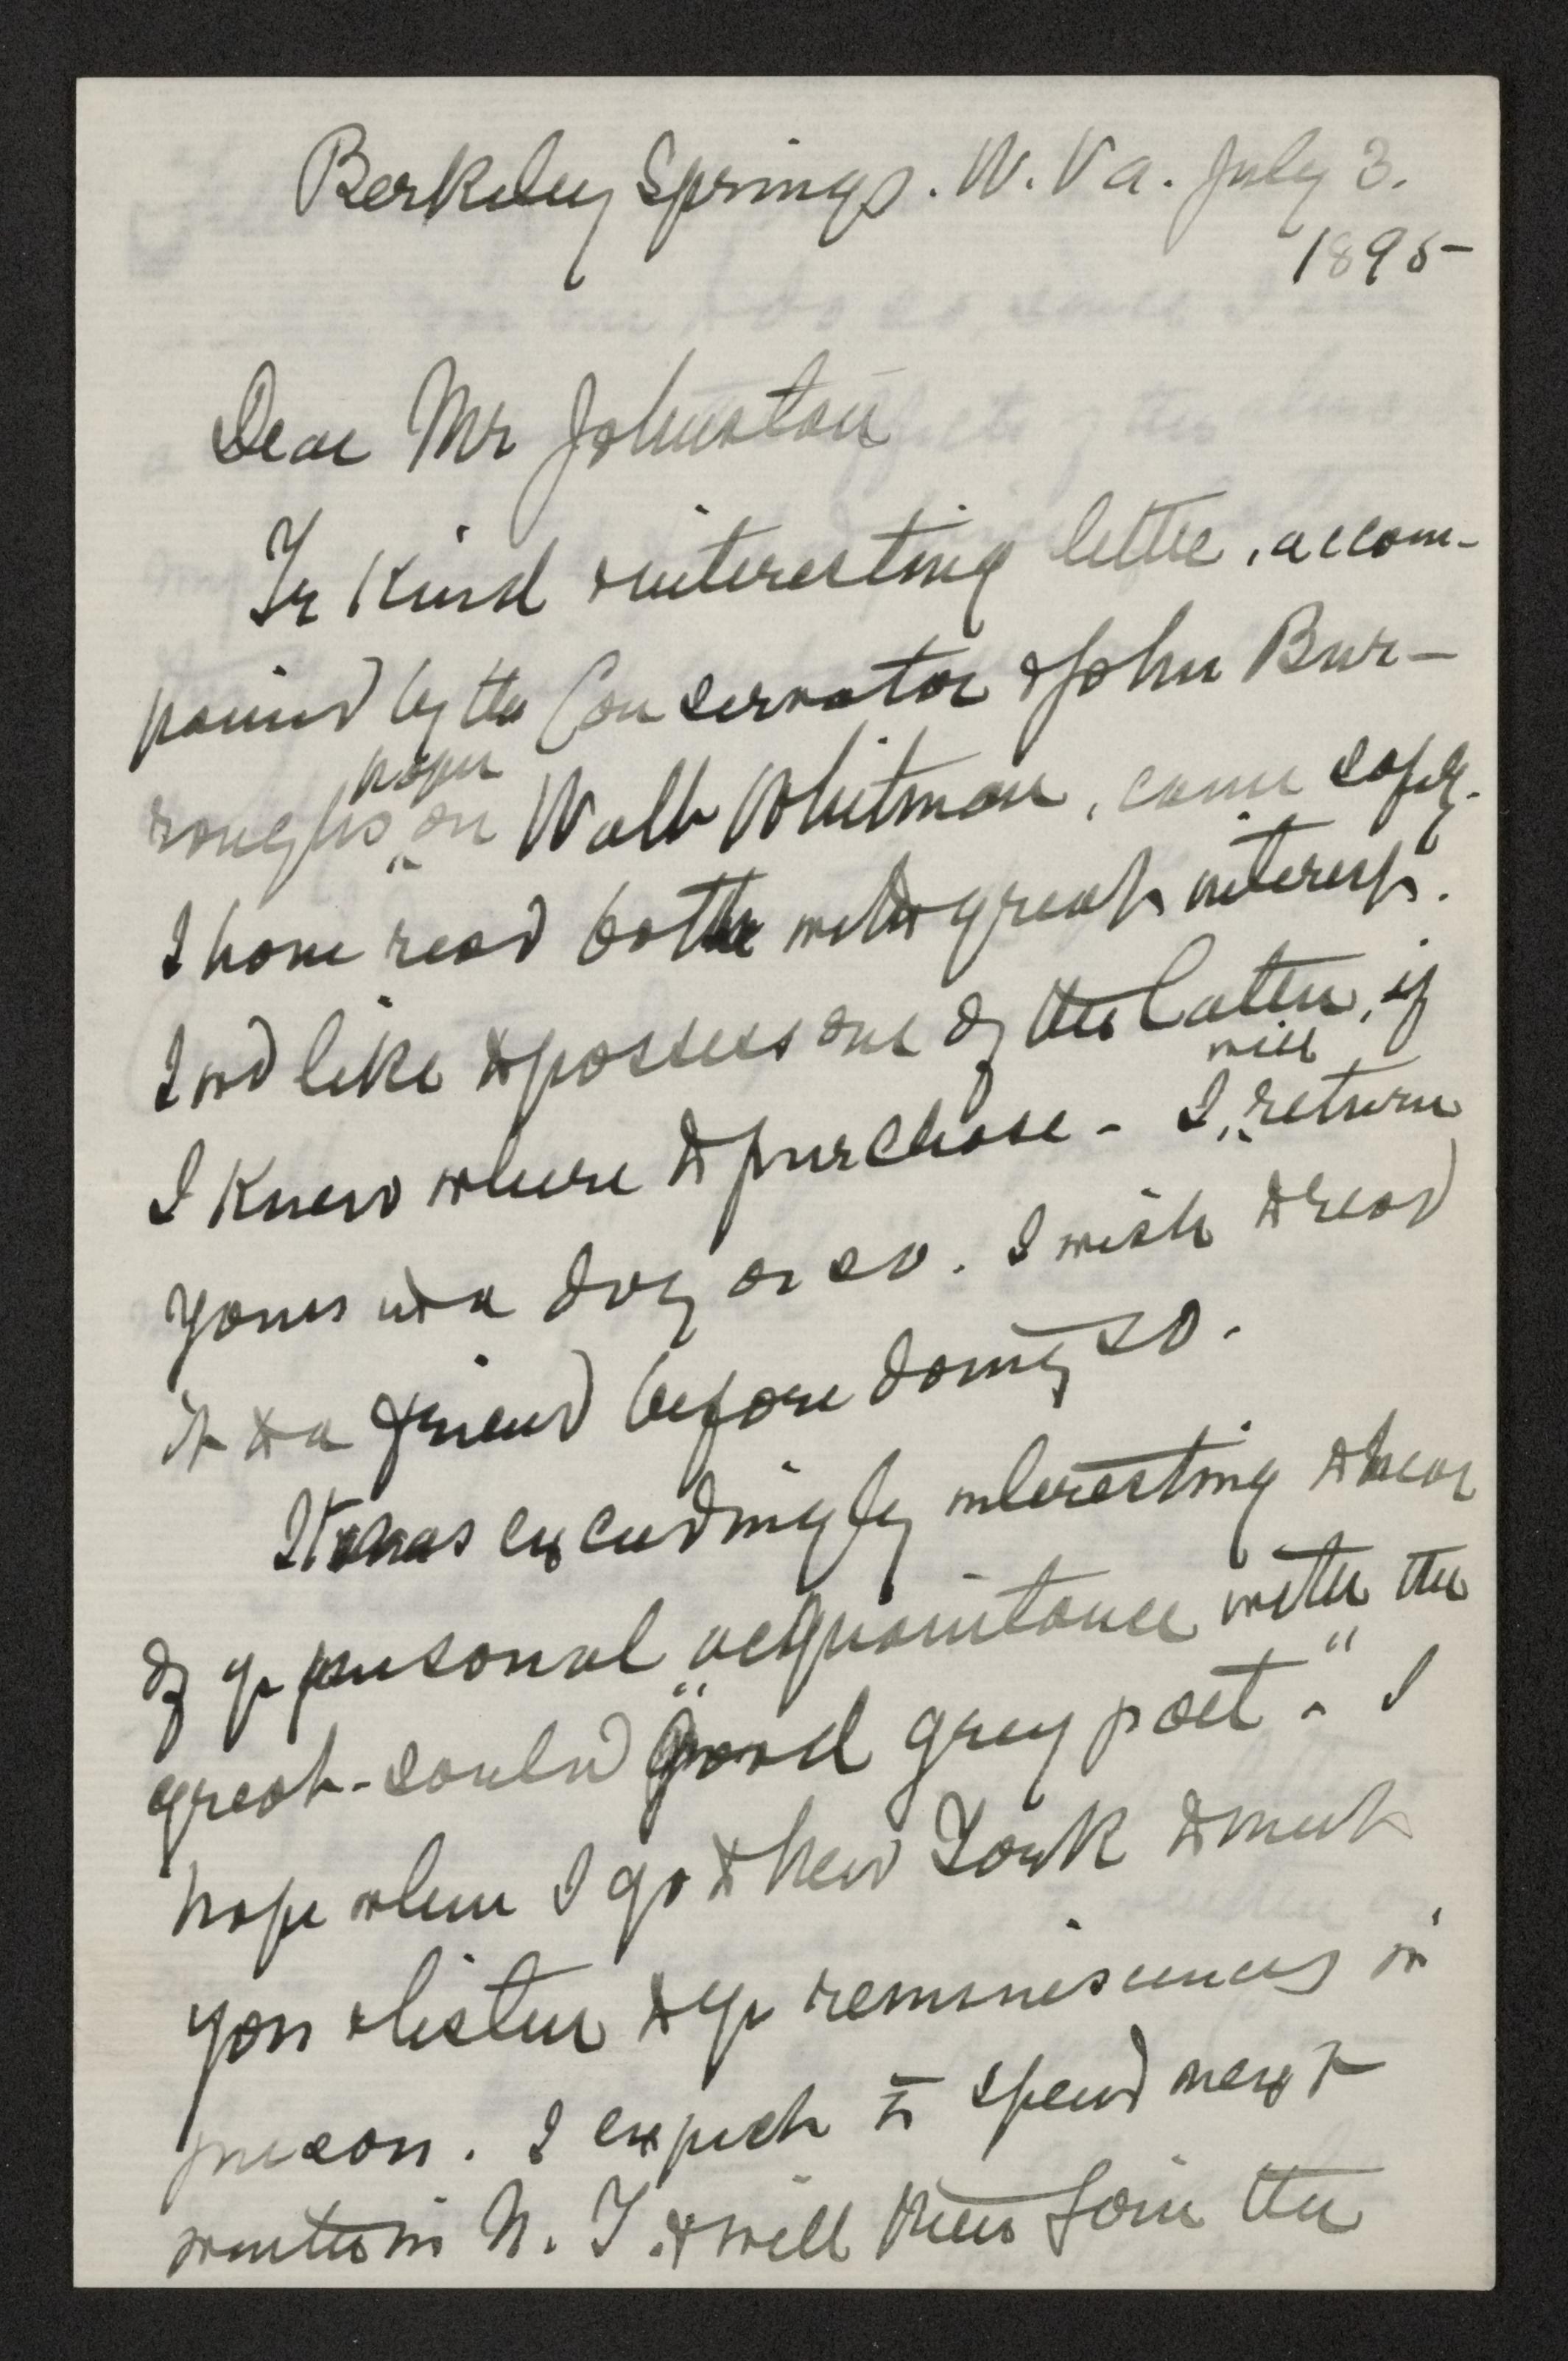 Berkeley Springs. W. Va. July 3.
1895
Dear Mr Johnston
Yr kind & interesting letter, accom-
panied by the Conservator & John Bur-
roughs paper on Walt Whitman, came safely.
I have read both with great interest.
I wd like to possess one of the latter, if
I knew where to purchase - I will return
yours in a day or so. I wish to read
it to a friend before doing so.
It was exceedingly interesting to hear
of yr personal acquaintance with the
great-souled "good grey poet." I
hope when I go to New York to meet
you & listen to yr reminiscences in
person. I expect to spend next
winter in N. Y. & will then join the